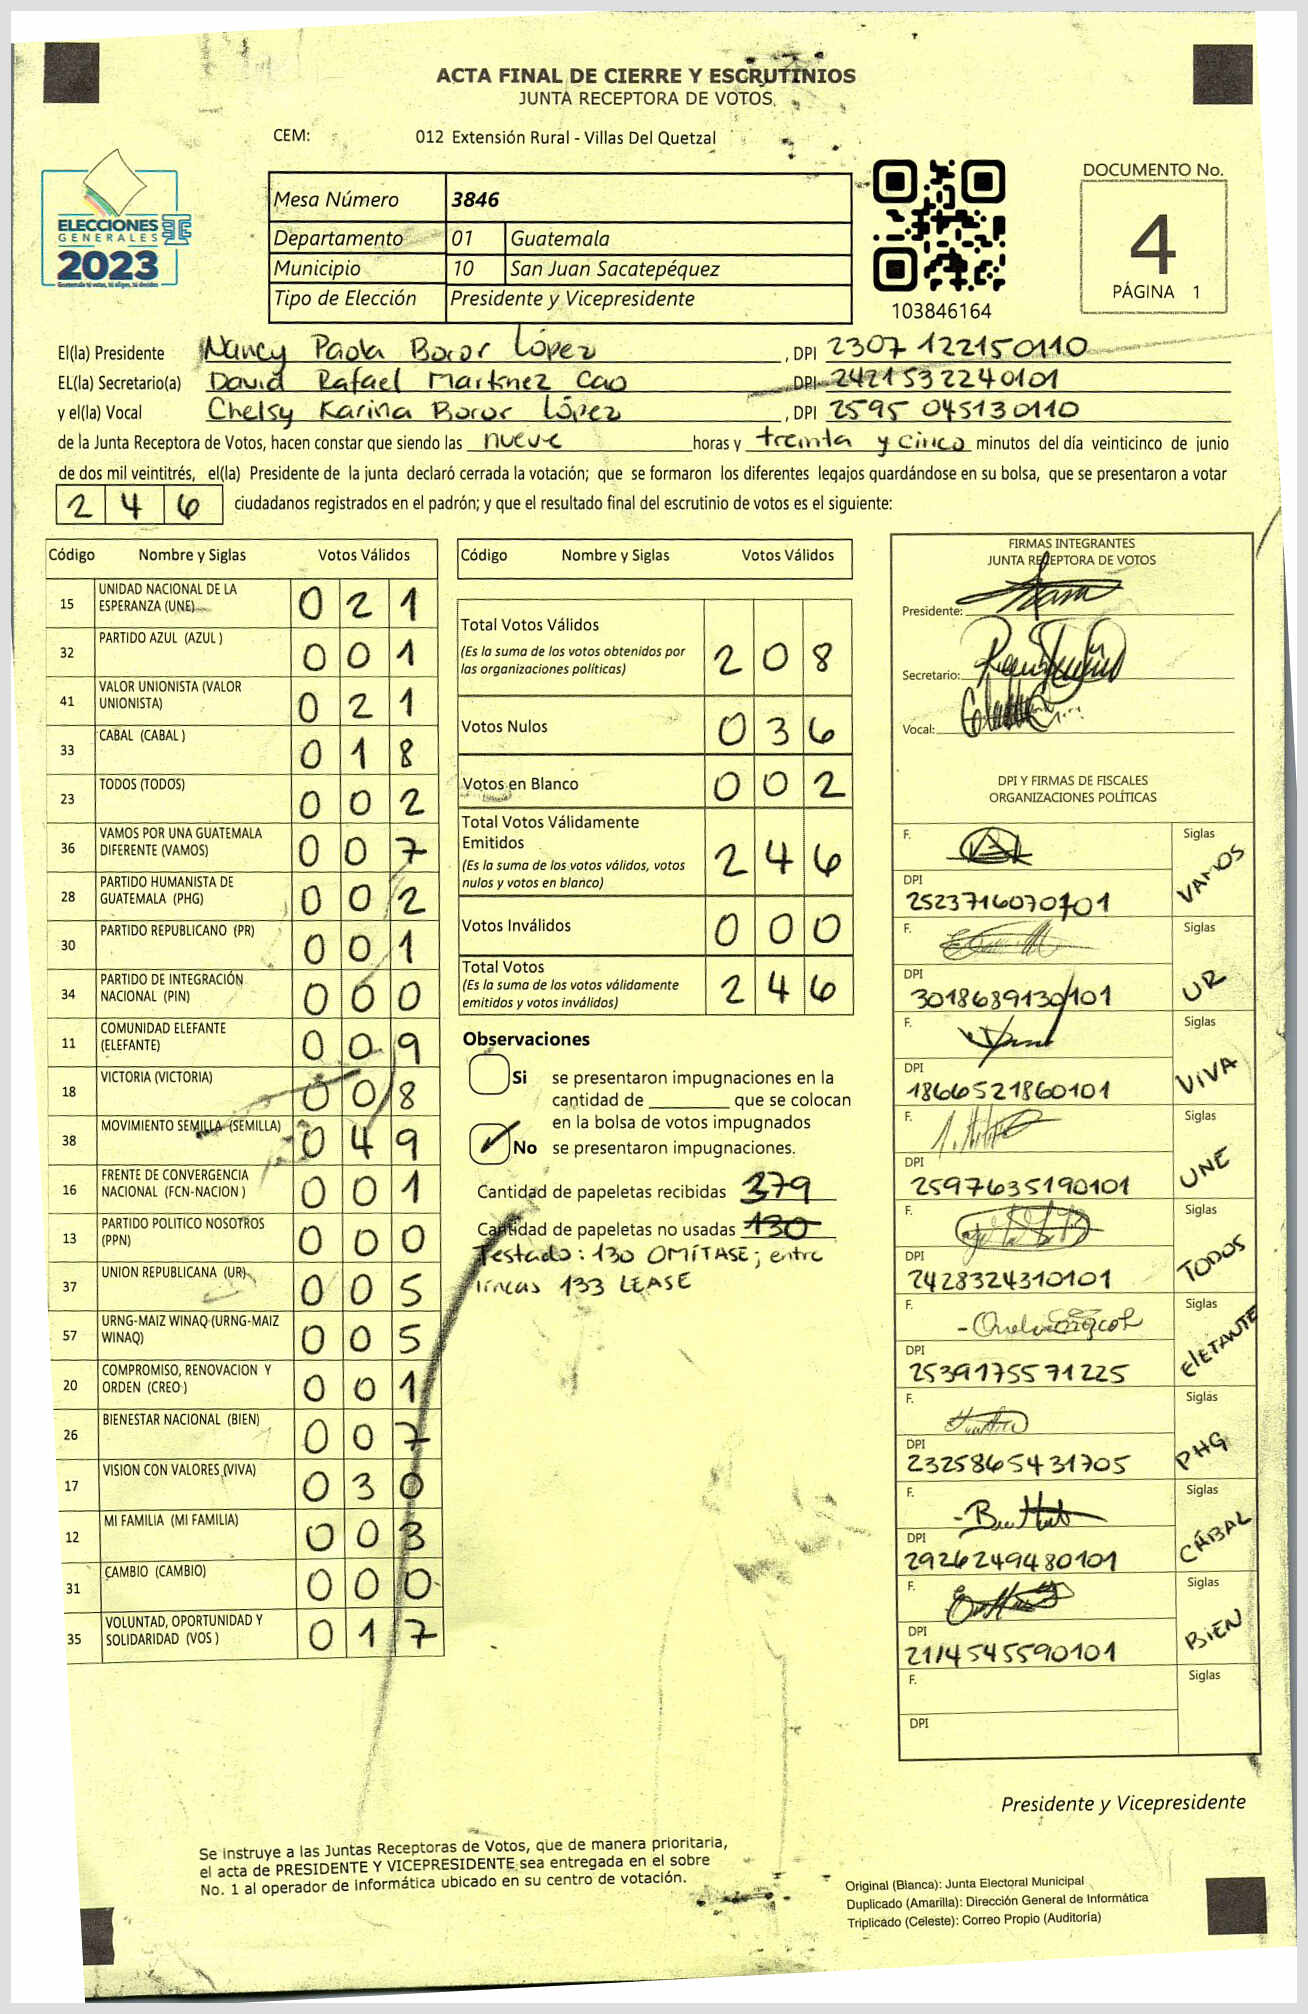 ACTA FINAL DE CIERRE Y ESCRUTINIOS
JUNTA RECEPTORA DE VOTOS
CEM: 012 Extensión Rural - Villas Del Quetzal
ELECCIONES
GENERALES
2023
Guatemala tú votas, tú eliges, tú decides
Mesa Número 3846
Departamento 01 Guatemala
Municipio 10 San Juan Sacatepéquez
Tipo de Elección Presidente y Vicepresidente
103846164
DOCUMENTO No.
4
PÁGINA 1
El(la) Presidente Nancy Paola Boror López, DPI 2307 122150110
EL(la) Secretario(a) David Rafael Martinez Cao DPI 2421532240101
y el(la) Vocal Chelsy Karina Boror López, DPI 2595 045130110
de la Junta Receptora de Votos, hacen constar que siendo las nueve horas y treinta y cinco minutos del día veinticinco de junio
de dos mil veintitrés, el(la) Presidente de la junta declaró cerrada la votación; que se formaron los diferentes legajos quardándose en su bolsa, que se presentaron a votar
246 ciudadanos registrados en el padrón; y que el resultado final del escrutinio de votos es el siguiente:
Código Nombre y Siglas Votos Válidos
15 UNIDAD NACIONAL DE LA ESPERANZA (UNE) 021
32 PARTIDO AZUL (AZUL ) 001
41 VALOR UNIONISTA (VALOR UNIONISTA) 021
33 CABAL (CABAL ) 018
23 TODOS (TODOS) 002
36 VAMOS POR UNA GUATEMALA DIFERENTE (VAMOS) 007
28 PARTIDO HUMANISTA DE GUATEMALA (PHG) 002
30 PARTIDO REPUBLICANO (PR) 001
34 PARTIDO DE INTEGRACIÓN NACIONAL (PIN) 000
11 COMUNIDAD ELEFANTE (ELEFANTE) 009
18 VICTORIA (VICTORIA) 008
38 MOVIMIENTO SEMILLA (SEMILLA) 049
16 FRENTE DE CONVERGENCIA NACIONAL (FCN-NACION ) 001
13 PARTIDO POLITICO NOSOTROS (PPN) 000
37 UNION REPUBLICANA (UR) 005
57 URNG-MAIZ WINAQ (URNG-MAIZ WINAQ) 005
20 COMPROMISO, RENOVACION Y ORDEN (CREO ) 001
26 BIENESTAR NACIONAL (BIEN) 007
17 VISION CON VALORES (VIVA) 030
12 MI FAMILIA (MI FAMILIA) 003
31 CAMBIO (CAMBIO) 000
35 VOLUNTAD, OPORTUNIDAD Y SOLIDARIDAD (VOS ) 017
Código Nombre y Siglas Votos Válidos
Total Votos Válidos
(Es la suma de los votos obtenidos por
las organizaciones políticas) 208
Votos Nulos 036
Votos en Blanco 002
Total Votos Válidamente
Emitidos
(Es la suma de los votos válidos, votos
nulos y votos en blanco) 246
Votos Inválidos 000
Total Votos
(Es la suma de los votos válidamente
emitidos y votos inválidos) 246
Observaciones
Si se presentaron impugnaciones en la
cantidad de ________ que se colocan
en la bolsa de votos impugnados
No se presentaron impugnaciones.
Cantidad de papeletas recibidas 379
Cantidad de papeletas no usadas 130
Testado: 130 OMÍTASE; entre
líneas 133 LEASE
FIRMAS INTEGRANTES
JUNTA RECEPTORA DE VOTOS
Presidente:
Secretario:
Vocal:
DPI Y FIRMAS DE FISCALES
ORGANIZACIONES POLÍTICAS
F. Siglas VAMOS
DPI 2523716070101
F. Siglas UR
DPI 3018689130101
F. Siglas VIVA
DPI 1866521860101
F. Siglas UNE
DPI 2597635190101
F. Siglas TODOS
DPI 2428324310101
F. Siglas ElEFANTE
DPI 2539175571225
F. Siglas PHG
DPI 2325865431705
F. Siglas CABAL
DPI 2926249480101
F. Siglas BIEN
DPI 2114545590101
F. Siglas
DPI
Presidente y Vicepresidente
Se instruye a las Juntas Receptoras de Votos, que de manera prioritaria,
el acta de PRESIDENTE Y VICEPRESIDENTE sea entregada en el sobre
No. 1 al operador de informática ubicado en su centro de votación.
Original (Blanca): Junta Electoral Municipal
Duplicado (Amarilla): Dirección General de Informática
Triplicado (Celeste): Correo Propio (Auditoría)